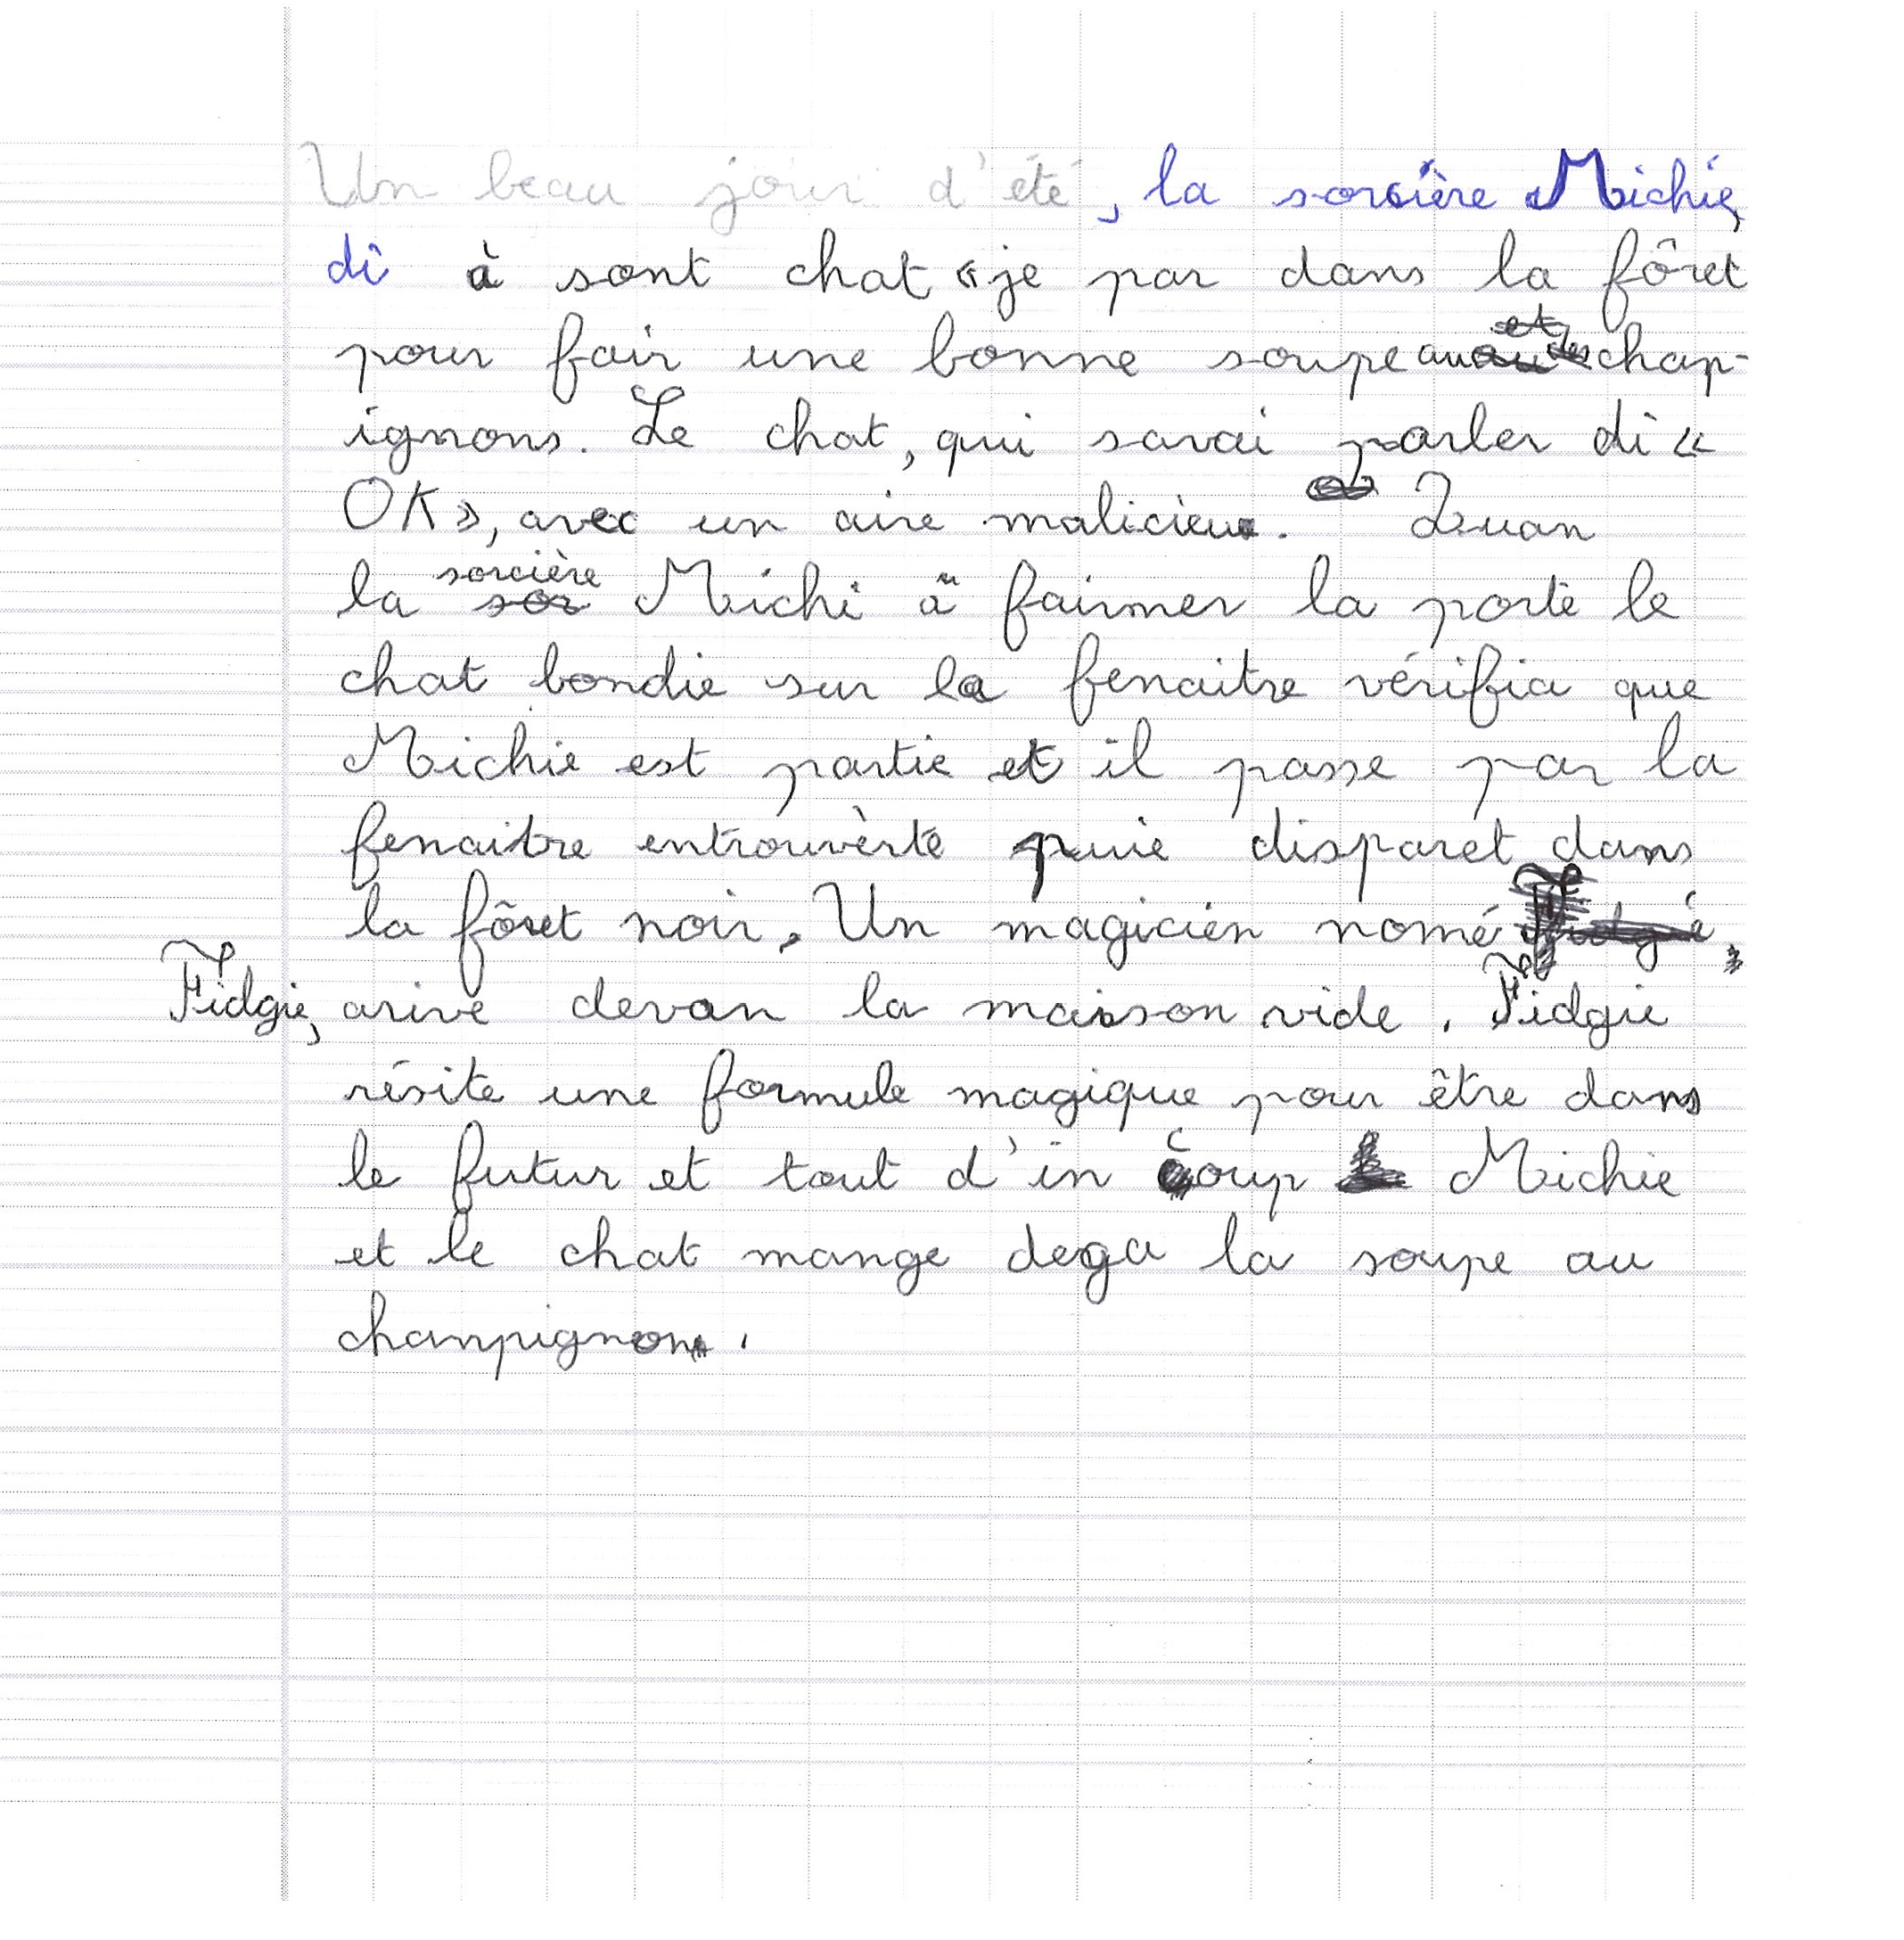 Un beau jour d'été, la sorcière Michie,
di à sont chat « je par dans la fôret
pour fair une bonne soupe au chap-
ignons. Le chat, qui savai parler di «
OK », avec un aire malicieux. Quan
la sorcière Michi à fairmer la porte le
chat bondie sur la fenaitre vérifia que
Michie est partie et il passe par la
fenaitre entrouvèrte puie disparet dans
la fôret noir. Un magicien nomé
Fidgie, arive devan la maison vide. Fidgie
résite une formule magique pour être dans
le futur et tout d'in coup Michie
et le chat mange dega la soupe au
chanpignons.